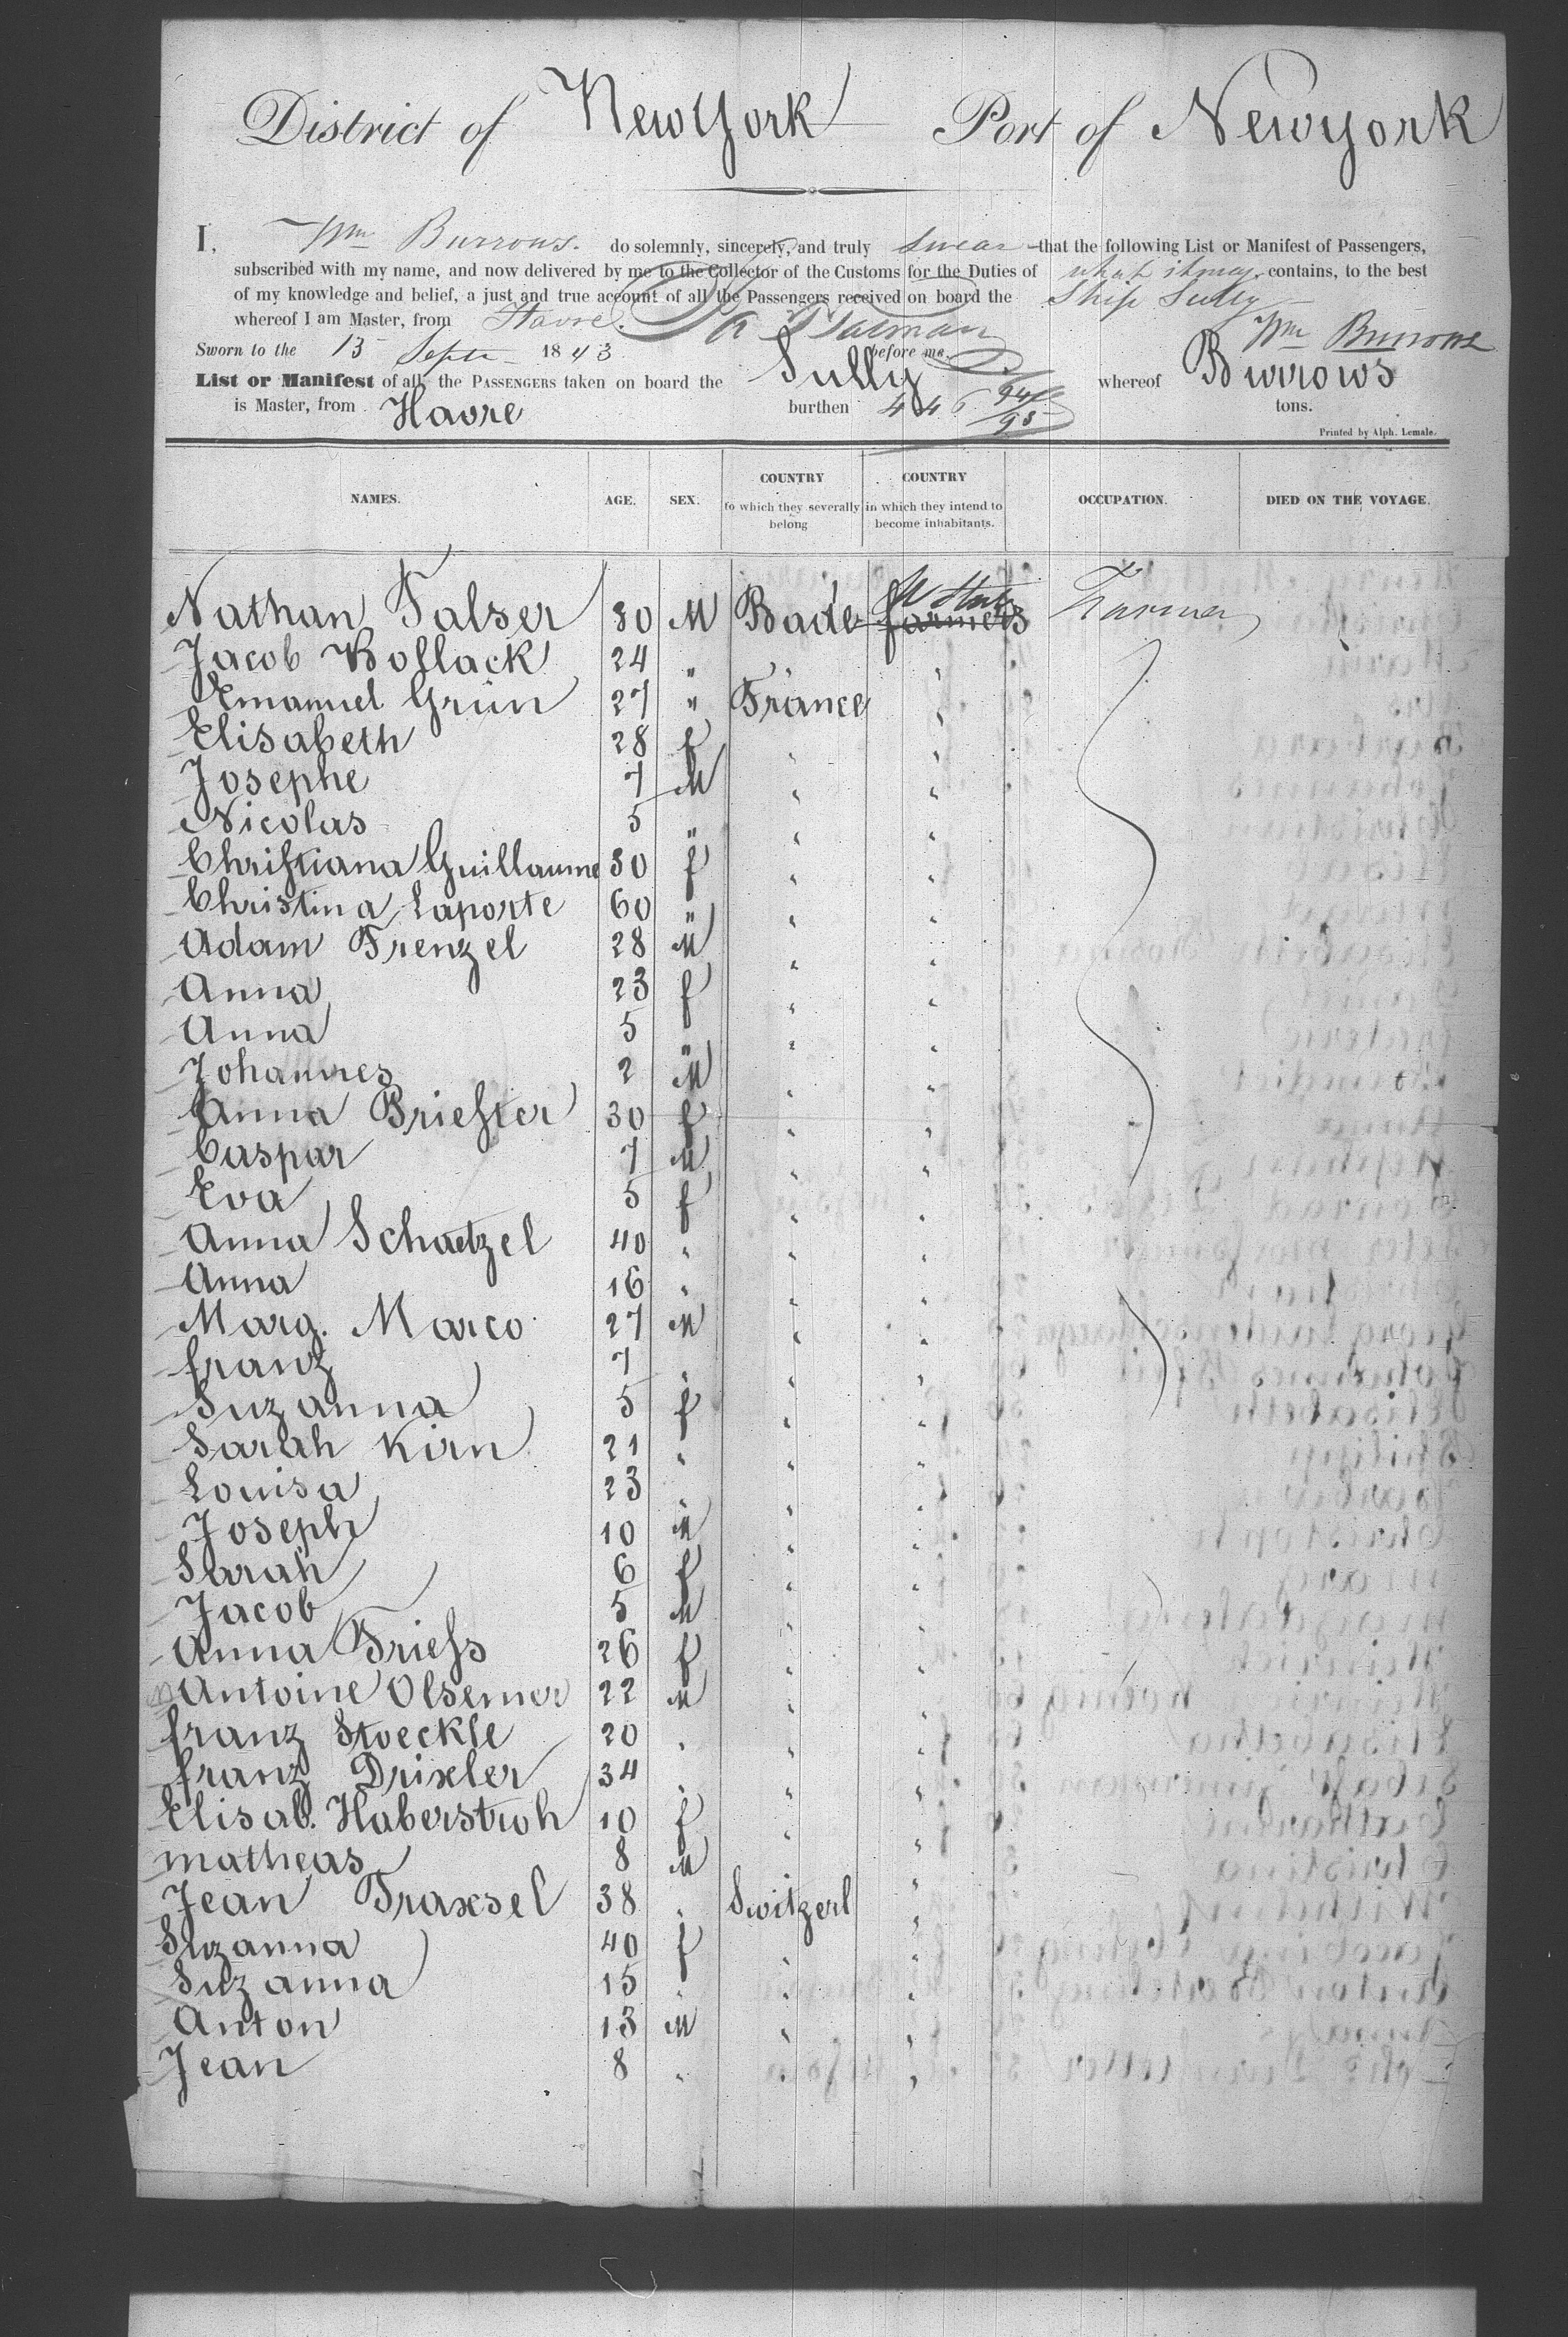 District of New York Port of Newyork
I, Wm Burrows. do solemnly, sincerely, and truly swear that the following List or Manifest of Passengers,
subscribed with my name, and now delivered by me to the Collector of the Customs for the Duties of what it may, contains, to the best
of my knowledge and belief, a just and true account of all the Passengers received on board the Ship Sully
whereof I am Master, from Havre.
Wm Burrows
Sworn to the 13 Septr 1843 before me.
List or Manifest of all, the PASSENGERS taken on board the Sully whereof Burrows
is Master, from Havre burthen 446 94/95 tons.
Printed by Alph. Lemale.
NAMES. AGE. SEX. COUNTRY to which they severally belong COUNTRY in which they intend to become inhabitants. OCCUPATION. DIED ON THE VOYAGE.
Nathan Falser 30 M Bade farmers Farmer
Jacob Bollack 24 " " "
Emanuel Grün 27 " France "
Elisabeth 28 f " "
Josephe 7 M " "
Nicolas 5 " " "
Christiana Guillaume 30 f " "
Christina Laporte 60 " " "
Adam Frenzel 28 M " "
Anna 23 f " "
Anna 5 " " "
Johannes 2 M " "
Anna Briester 30 f " "
Caspar 7 M " "
Eva 5 f " "
Anna Schaetzel 40 " " "
Anna 16 " " "
Marg. Marco 27 M " "
franz 7 " " "
Suzanna 5 f " "
Sarah Kirn 21 " " "
Louisa 23 " " "
Joseph 10 M " "
Sarah 6 f " "
Jacob 5 M " "
Anna Friess 26 f " "
Antoine Olsemer 22 M " "
franz Stoeckle 20 " " "
franz Drixler 34 " " "
Elisab. Haberstroh 10 f " "
matheas 8 M " "
Jean Traxsel 38 " Switzerl "
Suzanna 40 f " "
Suzanna 15 " " "
Anton 13 M " "
Jean 8 " " "